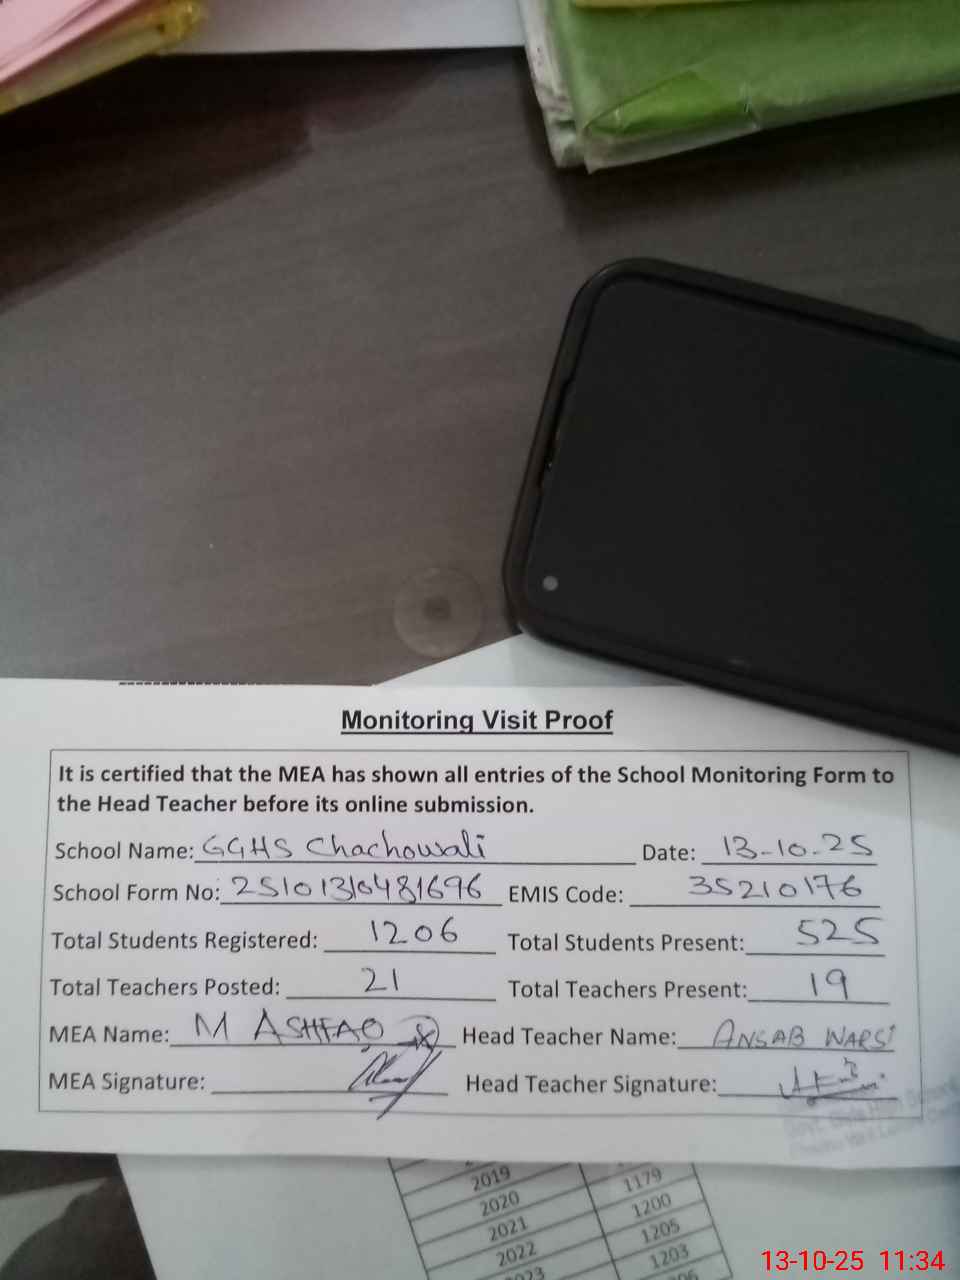 Monitoring Visit Proof
It is certified that the MEA has shown all entries of the School Monitoring Form to
the Head Teacher before its online submission.
School Name: GGHS Chachowali Date: 13-10-25
School Form No: 25101310481696 EMIS Code: 35210176
Total Students Registered: 1206 Total Students Present: 525
Total Teachers Posted: 21 Total Teachers Present: 19
MEA Name: M ASHFAQ Head Teacher Name: ANSAB WARSI
MEA Signature: Head Teacher Signature:
Govt. Girls High School
2019
2020 1179
2021 1200
2022 1205
1203
13-10-25 11:34